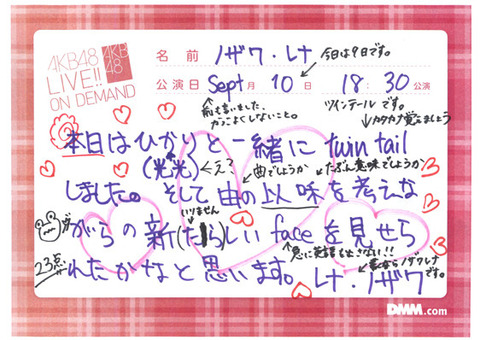 AKB48
LIVE!!
ON DEMAND
AKB
48
名前 ノザワ・レナ
今日は9日です。
公演日 Sept 月 10 日 18:30 公演
前も言いました、
カッコよくしないこと。
ツインテールです。
カタカナ覚えましょう
本日はひかりと一緒に twin tail
(光光)←え?
曲でしょうか
たぶん意味でしょうか
しました。そして由の以味を考えな
いりません
がらの新(たら)しい faceを見せら
が
急に英語を出さない!!
れたかなと思います。レナ・ノザワ
23点
素ならノザワレナ
です。
DMM.com